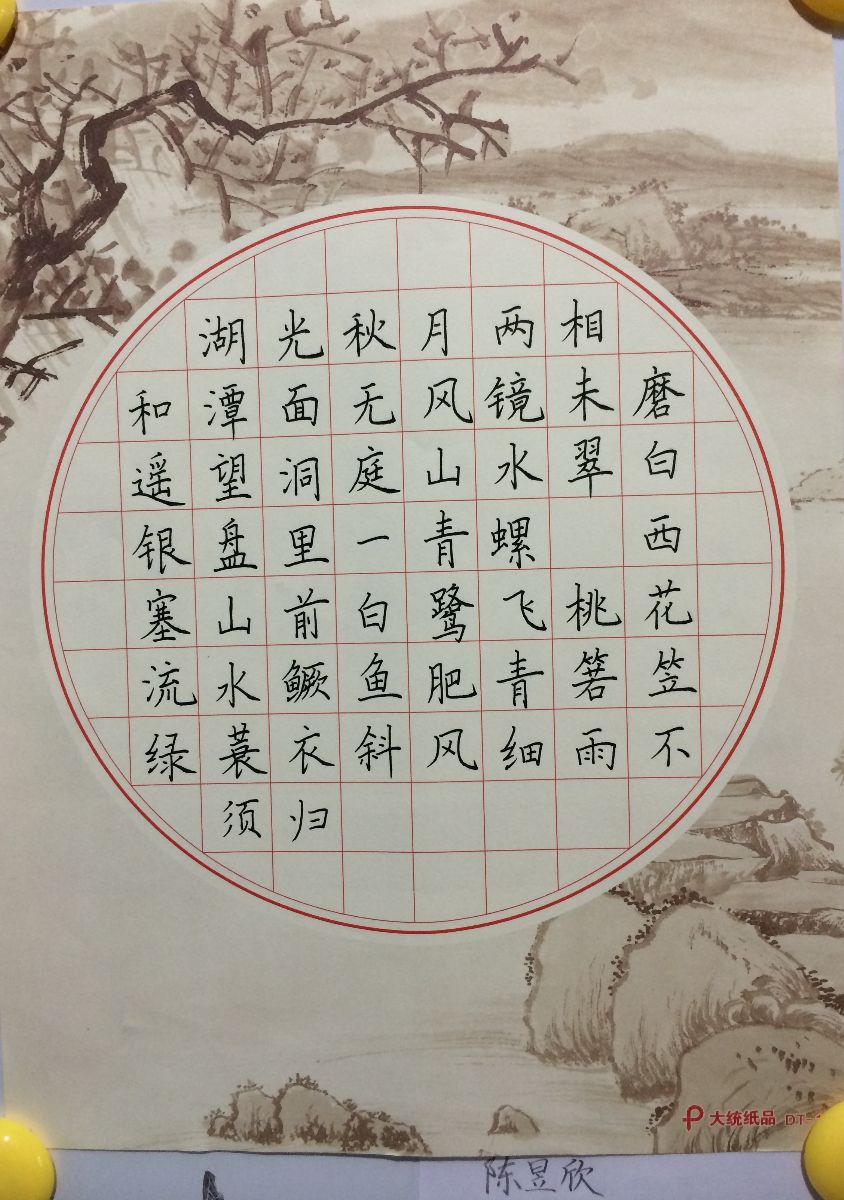 湖光秋月两相
和潭面无风镜未磨
遥望洞庭山水翠白
银盘里一青螺 西
塞山前白鹭飞桃花
流水鳜鱼肥青箬笠
绿蓑衣斜风细雨不
须归
大统纸品 DT-
陈昱欣